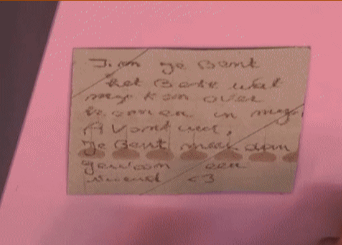 Jim je Bent
het Beste wat
mij kon over
komen in mijn
Avontuur,
je Bent meer dan
gewoon een
vriend <3